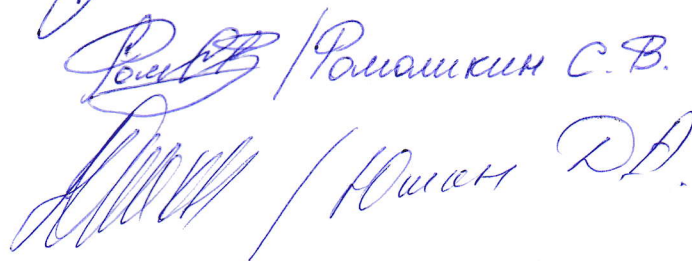 / Ромашкин С. В.
/ Юшан Д. А.